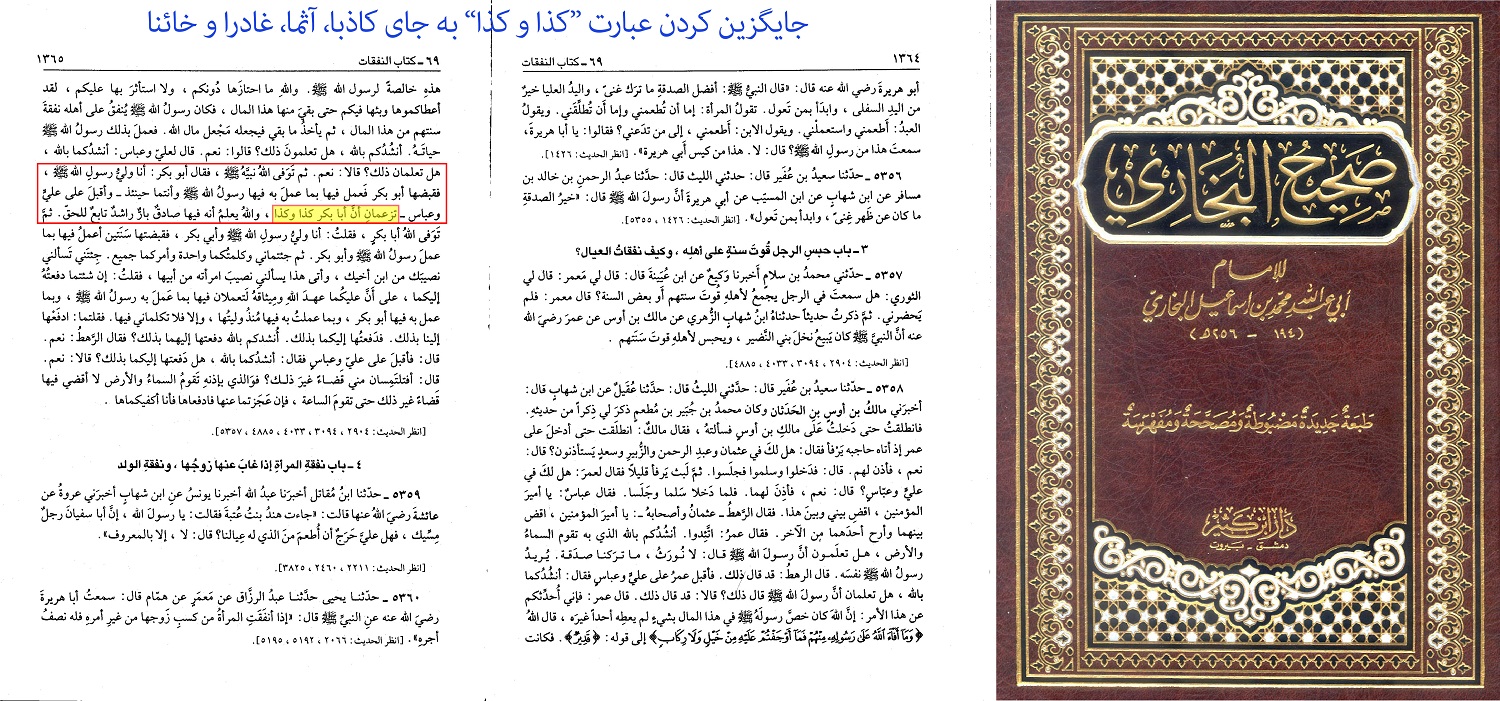 جایگزین کردن عبارت “کذا و کذا” به جای کاذبا، آثما، غادرا و خائنا
١٣٦٤
٦٩ ـ كتاب النفقات
أبو هريرةَ رضي الله عنه قال: «قال النبيُّ ﷺ: أفضل الصدقةِ ما ترَك غنىً ، واليدُ العليا خيرٌ
من اليدِ السفلى ، وابدَأ بمن تَعول. تقولُ المرأة: إما أن تُطعمَني وإما أن تُطلِّقَني. ويقولُ
العبدُ: أَطعمني واستعمِلْني. ويقول الابن: أطعمني ، إلى من تدَعني؟ فقالوا: يا أبا هريرةَ،
سمعتَ هذا من رسولِ الله ﷺ؟ قال: لا. هذا من كيس أَبي هريرة». [انظر الحديث: ١٤٢٦].
٥٣٥٦ ـ حدثنا سعيدُ بن عُفَير قال: حدثني الليث قال: حدثني عبدُ الرحمنِ بن خالد بن
مسافر عن ابن شهابٍ عن ابن المسيّب عن أبي هريرةَ أنَّ رسول الله ﷺ قال: «خيرُ الصدَقةِ
ما كان عن ظَهر غِنىً ، وابدأ بمن تَعول». [انظر الحديث: ١٤٢٦ ، ٥٣٥٥].
٣ ـ باب حبسِ الرجل قُوتَ سنةٍ على أهلِه ، وكيف نفقاتُ العيال؟
٥٣٥٧ ـ حدّثني محمدُ بن سلامٍ أخبرنا وَكيعٌ عن ابن عُيَينةَ قال: قال لي مَعمر: قال لي
الثوري: هل سمعتَ في الرجل يجمعُ لأهلهِ قُوتَ سنتهم أو بعض السنة؟ قال معمر: فلم
يَحضرني. ثمَّ ذكرتُ حديثاً حدثناهُ ابنُ شهابٍ الزُّهري عن مالك بن أوس عن عمرَ رضيَ الله
عنه أنَّ النبيَّ ﷺ كان يَبيعُ نخلَ بني النَّضير ، ويحبس لأهلهِ قوتَ سنَتهم .
[انظر الحديث: ٢٩٠٤ ، ٣٠٩٤ ، ٤٠٣٣ ، ٤٨٨٥].
٥٣٥٨ ـ حدّثنا سعيدُ بن عُفَير قال: حدَّثني الليثُ قال: حدَّثني عُقَيلٌ عن ابن شهابٍ قال:
أخبرَني مالكُ بن أوس بن الحَدَثان وكان محمدُ بن جُبَير بن مُطعمٍ ذكرَ لي ذِكراً من حديثهِ.
فانطلقتُ حتى دَخلتُ عَلَى مالكِ بن أوسٍ فسألته ، فقال مالكٌ: انطلَقت حتى أدخل على
عمرَ إذ أتاه حاجبه يَرْفأ فقال: هل لكَ في عثمان وعبدِ الرحمنِ والزُّبيرِ وسعدٍ يَستأذنون؟ قال:
نعم ، فأذن لهم. قال: فدَخلوا وسلموا فجلسوا. ثمَّ لَبث يَرفأ قليلاً فقال لعمرَ: هل لكَ في
عليٍّ وعبّاس؟ قال: نعم ، فأذِنَ لهما. فلما دَخلا سَلما وجَلَسا. فقال عباسٌ: يا أميرَ
المؤمنين ، اقضِ بيني وبينَ هذا. فقال الرهطُ ـ عثمانُ وأصحابهُ ـ: يا أميرَ المؤمنين ، اقضِ
بينهما وأرِح أحدَهما مِن الآخر. فقال عمرُ: اتَّئِدوا. أنشدُكم بالله الذي به تقوم السماءُ
والأرض ، هل تعلَمون أنَّ رسولَ الله ﷺ قال: لا نُورَثُ ، ما تركنا صدَقة. يُريدُ
رسولُ الله ﷺ نفسَه. قال الرهطُ: قد قال ذلك. فأقبل عمرُ على عليٍّ وعباس فقال: أنشدُكما
بالله ، هل تعلمان أنَّ رسولَ الله ﷺ قال ذلك؟ قالا: قد قال ذلك. قال عمر: فإني أُحدِّثكم
عن هذا الأمرِ: إنَّ اللهَ كان خصَّ رسولَهُ ﷺ في هذا المال بشيءٍ لم يعطِه أحداً غيرَه ، قال اللهُ
﴿وَمَا أَفَاءَ اللَّهُ عَلَىٰ رَسُولِهِ مِنْهُمْ فَمَا أَوْجَفْتُمْ عَلَيْهِ مِنْ خَيْلٍ وَلَا رِكَابٍ﴾ إلى قوله: ﴿قَدِيرٌ﴾. فكانت
٦٩ ـ كتاب النفقات
١٣٦٥
هذهِ خالصةً لرسول الله ﷺ. واللهِ ما احتازَها دُونَكم ، ولا استأثرَ بها عليكم ، لقد
أعطاكموها وبثها فيكم حتى بقيَ منها هذا المال ، فكان رسولُ الله ﷺ يُنفقُ على أهله نفقةَ
سنتهم من هذا المال ، ثم يأخذُ ما بقي فيجعله مَجْعل مال الله. فعملَ بذلك رسولُ الله ﷺ
حياتَهُ. أنشُدُكم بالله ، هل تعلمونَ ذلك؟ قالوا: نعم. قال لعليّ وعباس: أنشدُكما بالله ،
هل تعلمان ذلك؟ قالا: نعم. ثم توَفى اللهُ نبيَّهُ ﷺ ، فقال أبو بكر: أنا وليُّ رسولِ الله ﷺ ،
فقبضها أبو بكر فَعمل فيها بما عملَ به فيها رسولُ الله ﷺ وأنتما حينئذ ـ وأقبلَ على عليٍّ
وعباس ـ تزعمانِ أنَّ أبا بكر كذا وكذا ، واللهُ يعلمُ أنه فيها صادقٌ بارٌّ راشدٌ تابعٌ للحق. ثمَّ
تَوفى اللهُ أبا بكرٍ ، فقلتُ: أنا وليُّ رسولِ الله ﷺ وأبي بكر ، فقبضتها سَنَتين أعملُ فيها بما
عملَ رسولُ الله ﷺ وأبو بكر. ثم جئتماني وكلمتُكما واحدة وأمركما جميع. جِئتَني تَسألني
نصيبَك من ابن أخيك ، وأتى هذا يسألني نصيبَ امرأته من أبيها ، فقلتُ: إن شئتما دفعتُهُ
إليكما ، على أنَّ عليكما عهدَ اللهِ ومِيثاقَهُ لَتعملان فيها بما عَملَ به رسولُ الله ﷺ ، وبما
عمل به فيها أبو بكر ، وبما عملتُ به فيها مُنذُ وليتُها ، وإلا فلا تكلماني فيها. فقلتما: ادفَعْها
إلينا بذلك. فدَفعتُها إليكما بذلك. أنشدكم بالله دفعتها إليهما بذلك؟ فقال الرهطُ: نعم.
قال: فأقبلَ على عليّ وعباسٍ فقال: أنشدُكما بالله ، هل دَفعتها إليكما بذلك؟ قالا: نعم.
قال: أفتلتمِسان مني قضاءً غيرَ ذلك؟ فوَالذي بإذنهِ تَقومُ السماءُ والأرض لا أقضي فيها
قضاءً غير ذلك حتى تقومَ الساعة ، فإن عَجَزتما عنها فادفعاها فأنا أكفيكماها .
[انظر الحديث: ٢٩٠٤ ، ٣٠٩٤ ، ٤٠٣٣ ، ٤٨٨٥ ، ٥٣٥٧].
٤ ـ باب نفقةِ المرأةِ إذا غابَ عنها زَوجُها ، ونفقةِ الولد
٥٣٥٩ ـ حدّثنا ابنُ مُقاتل أخبرَنا عبدُ الله أخبرنا يونسُ عن ابن شهابٍ أخبرَني عروةُ عن
عائشةَ رضيَ اللهُ عنها قالت: «جاءت هندُ بنتُ عُتبةَ فقالت: يا رسولَ الله ، إنَّ أبا سفيانَ رجلٌ
مِسِّيك ، فهل عليَّ حَرَجٌ أن أُطعمَ منَ الذي له عِيالَنا؟ قال: لا ، إلا بالمعروف».
[انظر الحديث: ٢٢١١ ، ٢٤٦٠ ، ٣٨٢٥].
٥٣٦٠ ـ حدّثنا يحيى حدَّثنا عبدُ الرزّاق عن مَعمَرٍ عن همّام قال: سمعتُ أبا هريرةَ
رضيَ الله عنه عنِ النبيِّ ﷺ قال: «إذا أنفَقَتِ المرأةُ من كسبِ زَوجها من غيرِ أمرهِ فله نصفُ
أجرِه». [انظر الحديث: ٢٠٦٦ ، ٥١٩٢ ، ٥١٩٥].
صحيح البخاري
للإمام
أبي عبد الله محمد بن إسماعيل البخاري
(١٩٤ - ٢٥٦ هـ)
طبعة جديدة مضبوطة ومصححة ومفهرسة
دار ابن كثير
دمشق - بيروت